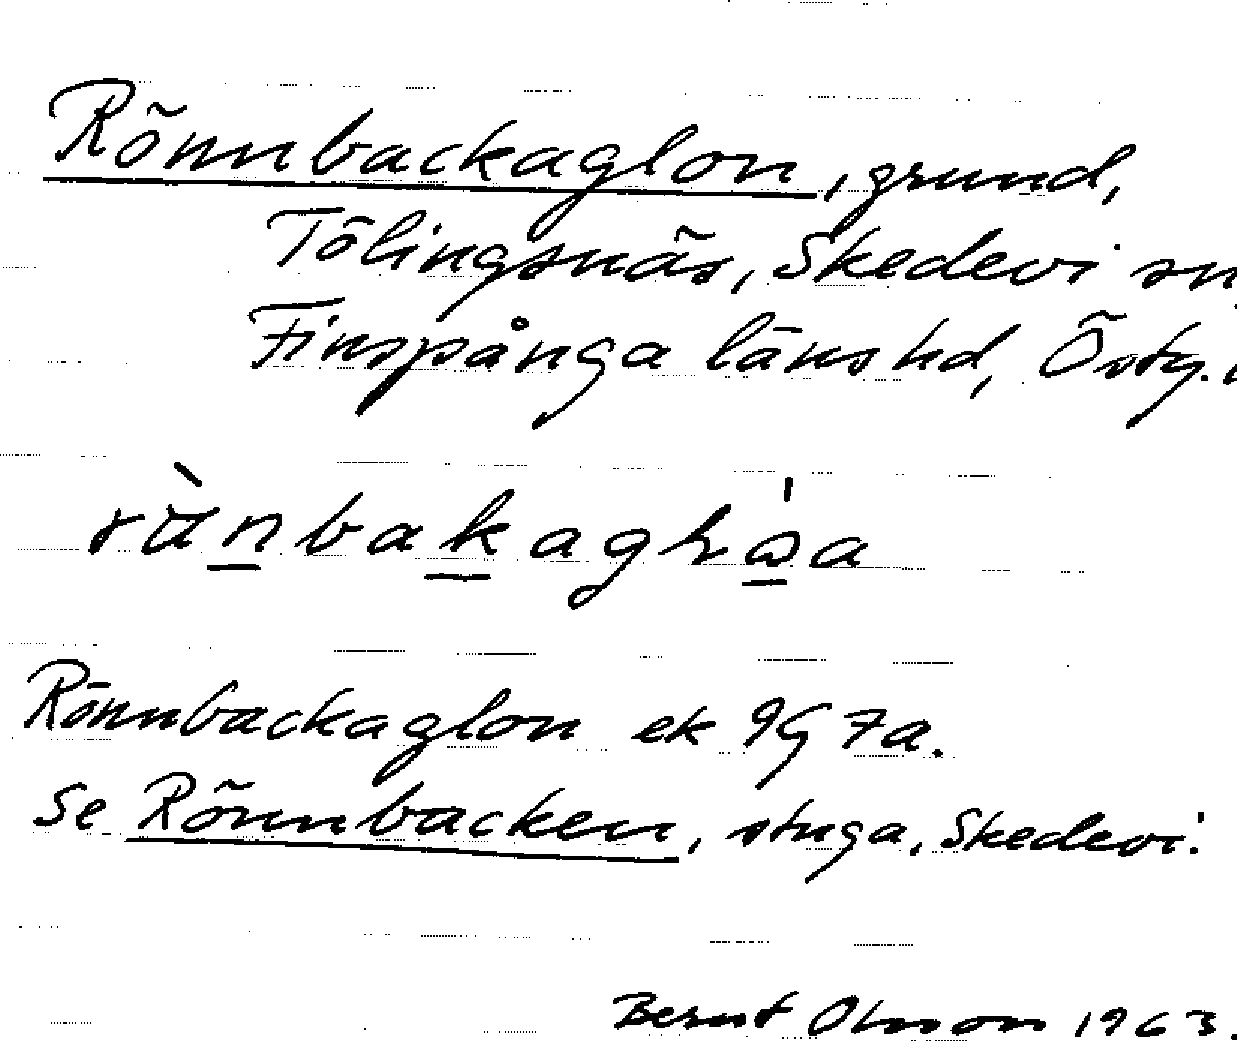 Rönnbackaglon, grund,
Tölingsnäs, Skedevi sn,
Finspånga läns hd, Östg.
Rönnbackaglon ek 9G 7a.
Se Rönnbacken, stuga, Skedevi.
Bernt Olsson 1963.